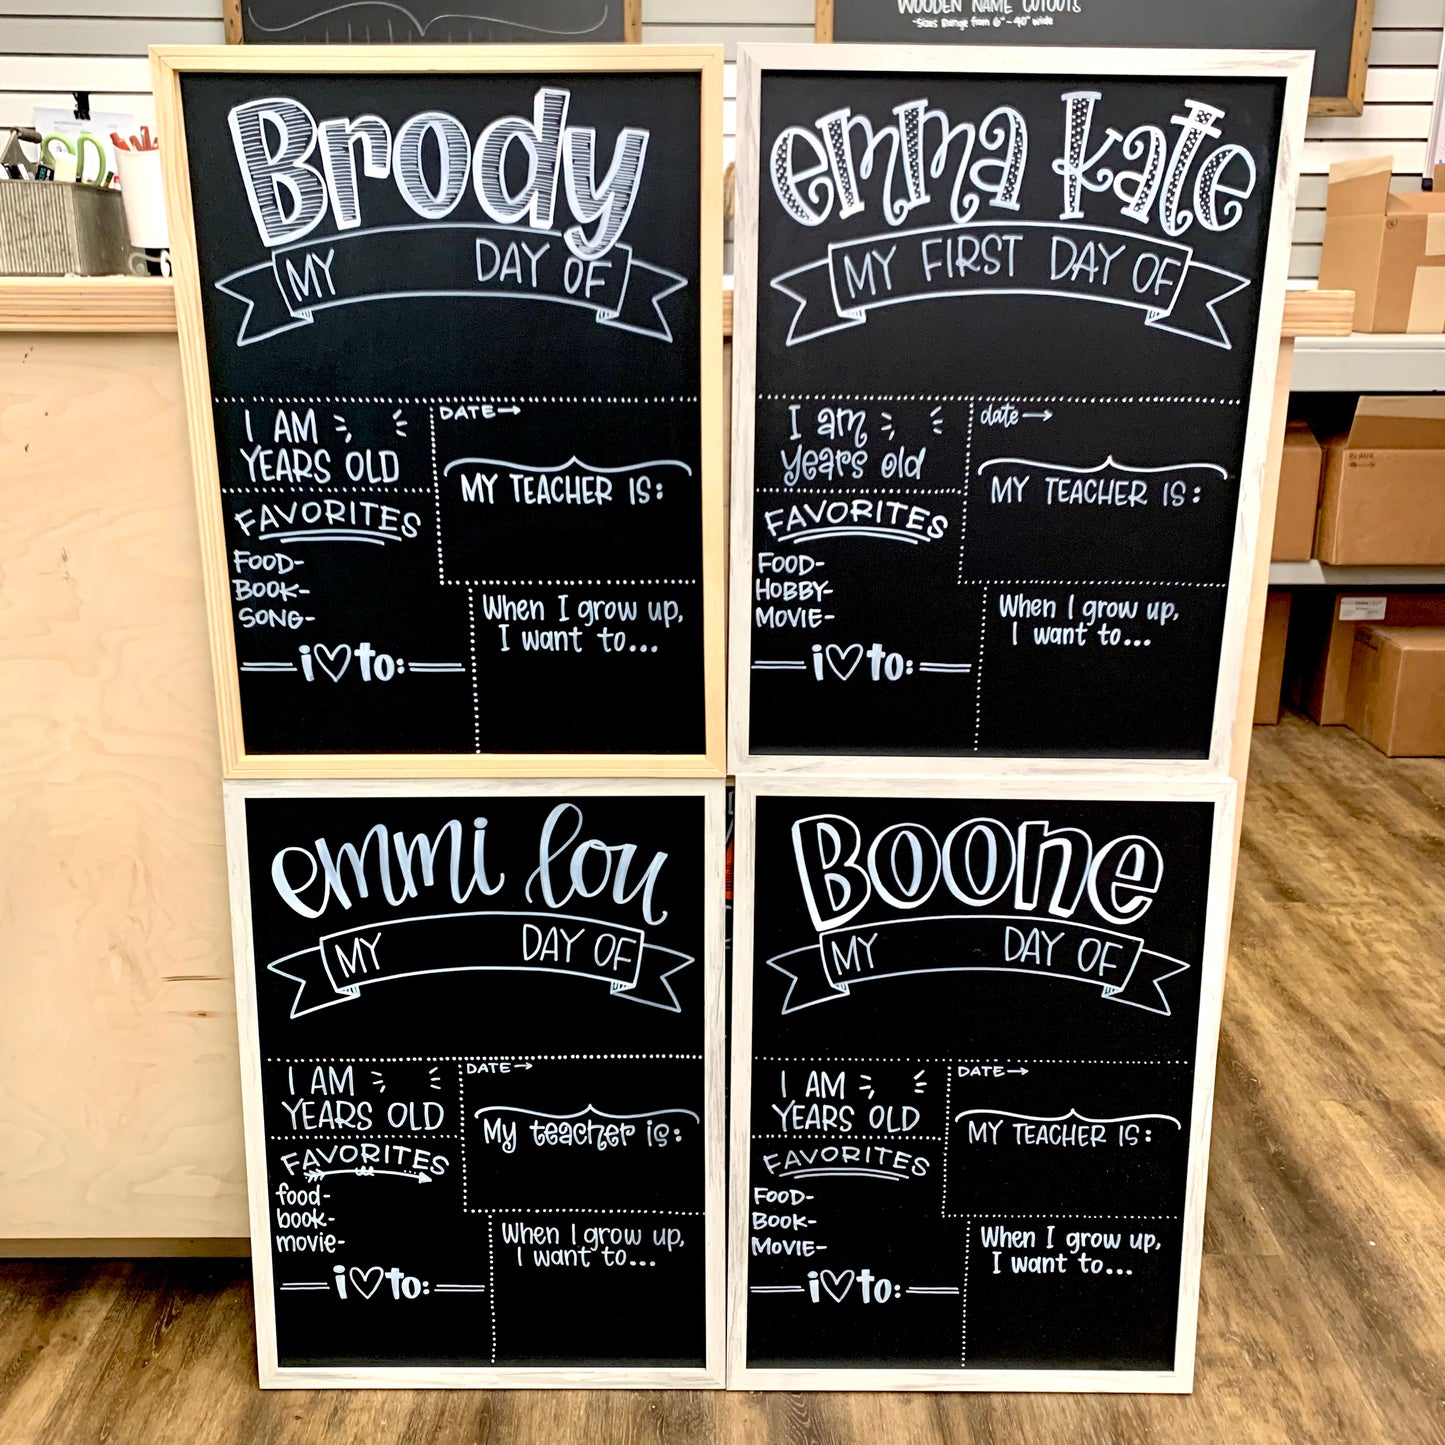 WOODEN NAME CUTOUTS
-Sizes Range from 6"-40" wide
Brody
MY DAY OF
I AM
YEARS OLD
DATE→
MY TEACHER IS:
FAVORITES
FOOD-
BOOK-
SONG-
i♡to:
When I grow up,
I want to...
emma kate
MY FIRST DAY OF
I am
years old
date→
MY TEACHER IS:
FAVORITES
FOOD-
HOBBY-
MOVIE-
i♡to:
When I grow up,
I want to...
emmi lou
MY DAY OF
I AM
YEARS OLD
DATE→
My teacher is:
FAVORITES
food-
book-
movie-
i♡to:
When I grow up,
I want to...
Boone
MY DAY OF
I AM
YEARS OLD
DATE→
MY TEACHER IS:
FAVORITES
FOOD-
BOOK-
MOVIE-
i♡to:
When I grow up,
I want to...